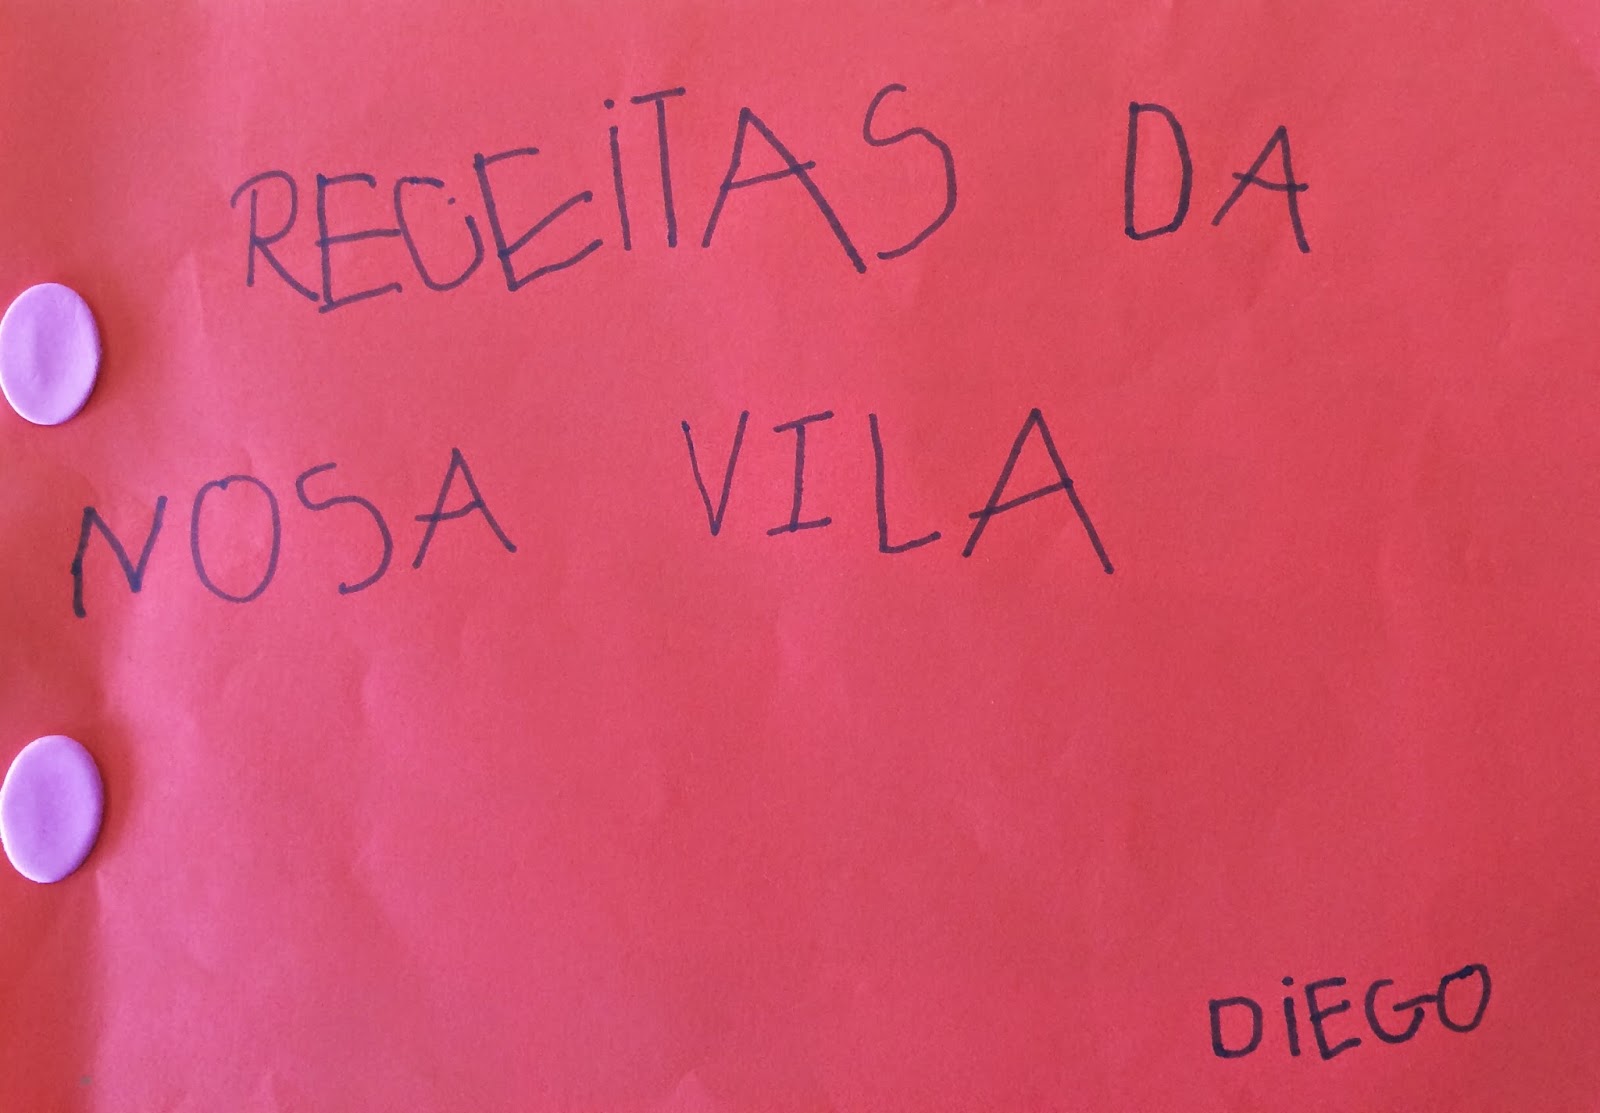 RECEiTAS DA
NOSA VILA
DiEGO